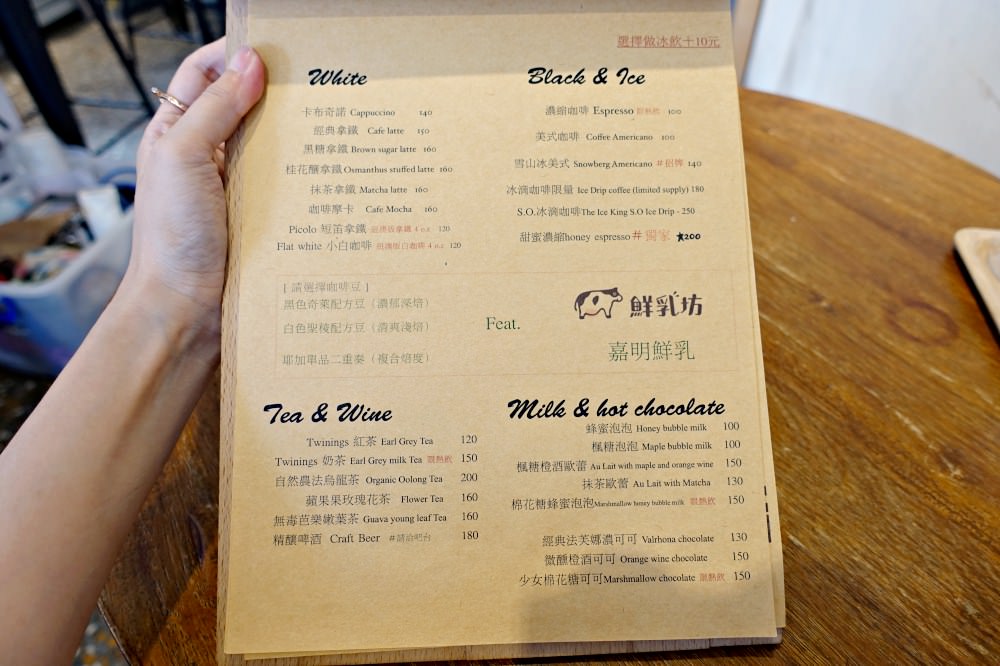 選擇做冰飲＋10元
White
卡布奇諾 Cappuccino 140
經典拿鐵 Cafe latte 150
黑糖拿鐵 Brown sugar latte 160
桂花釀拿鐵 Osmanthus stuffed latte 160
抹茶拿鐵 Matcha latte 160
咖啡摩卡 Cafe Mocha 160
Picolo 短笛拿鐵 迷澳版拿鐵 4 o.z 120
Flat white 小白咖啡 4 o.z 120
Black & Ice
濃縮咖啡 Espresso 限熱飲 100
美式咖啡 Coffee Americano 100
雪山冰美式 Snowberg Americano #招牌 140
冰滴咖啡限量 Ice Drip coffee (limited supply) 180
S.O.冰滴咖啡The Ice King S.O Ice Drip - 250
甜蜜濃縮honey espresso #獨家 ★200
[ 請選擇咖啡豆 ]
黑色奇萊配方豆（濃郁深焙）
白色聖稜配方豆（清爽淺焙）
耶加單品二重奏（複合焙度）
Feat.
鮮乳坊
嘉明鮮乳
Tea & Wine
Twinings 紅茶 Earl Grey Tea 120
Twinings 奶茶 Earl Grey milk Tea 限熱飲 150
自然農法烏龍茶 Organic Oolong Tea 200
蘋果果玫瑰花茶 Flower Tea 160
無毒芭樂嫩葉茶 Guava young leaf Tea 160
精釀啤酒 Craft Beer #請洽吧台 180
Milk & hot chocolate
蜂蜜泡泡 Honey bubble milk 100
楓糖泡泡 Maple bubble milk 100
楓糖橙酒歐蕾 Au Lait with maple and orange wine 150
抹茶歐蕾 Au Lait with Matcha 130
棉花糖蜂蜜泡泡Marshmallow honey bubble milk 限熱飲 150
經典法芙娜濃可可 Valrhona chocolate 130
微醺橙酒可可 Orange wine chocolate 150
少女棉花糖可可Marshmallow chocolate 限熱飲 150